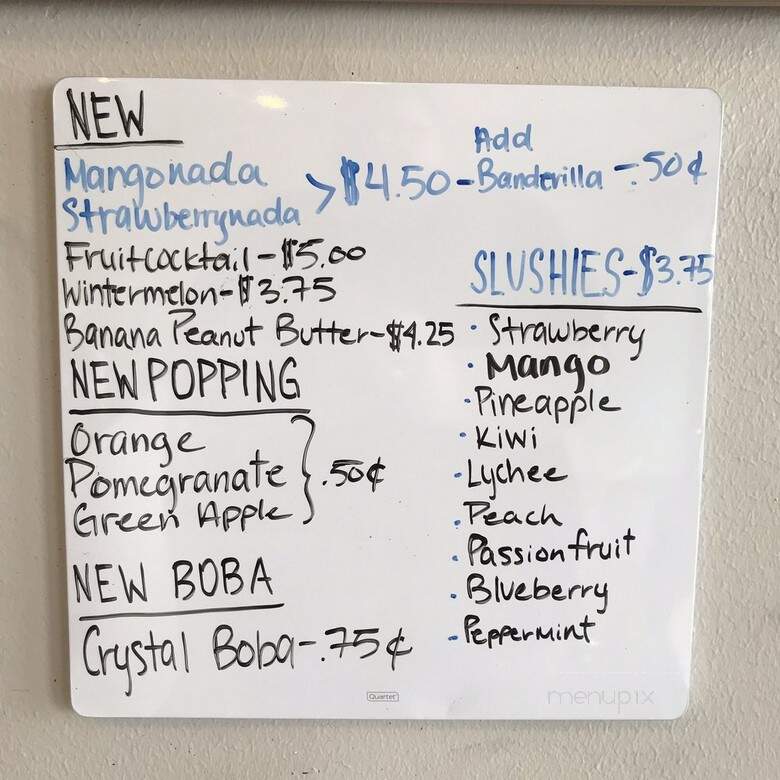 NEW
Mangonada
Strawberrynada
> $4.50 - Add Banderilla - .50¢
Fruitcocktail - $5.00
Wintermelon - $3.75
Banana Peanut Butter - $4.25
NEW POPPING
Orange
Pomegranate
Green Apple
} .50¢
NEW BOBA
Crystal Boba - .75¢
SLUSHIES - $3.75
• Strawberry
• Mango
• Pineapple
• Kiwi
• Lychee
• Peach
• Passionfruit
• Blueberry
• Peppermint
Quartet
menupix